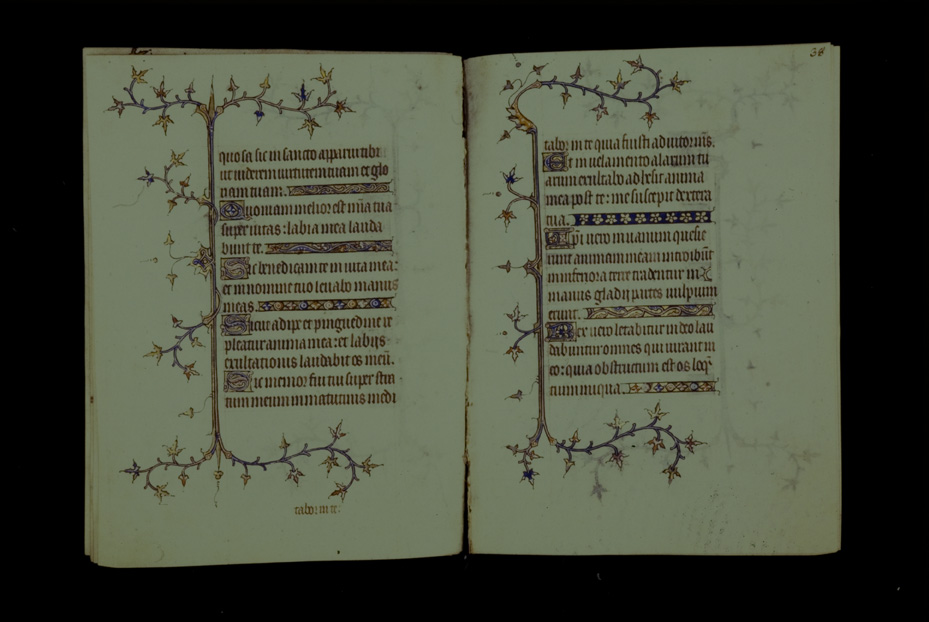 quo sa sic in sancto apparui tibi
ut viderem virtutem tuam et glo
riam tuam.
Quoniam melior est mīa tua
super vitas: labia mea lauda
bunt te.
Sic benedicam te in vita mea:
et in nomine tuo levabo manus
meas.
Sicut adipe et pinguedine re
pleatur anima mea: et labiis
exultationis laudabit os meū.
Sic memor fui tui super stra
tum meum in matutinis medi
tabor in te.
38
tabor in te quia fuisti adiutor m̄s.
Et in velamento alarum tu
arum exultabo adhesit anima
mea post te: me suscepit dextera
tua.
Ipi vero in vanum quesie
runt animam meam introibūt
in inferiora terre tradentur in
manus gladii partes vulpium
erunt.
Rex vero letabitur in deo lau
dabuntur omnes qui iurant in
eo: quia obstructum est os loq̄
tium iniqua.